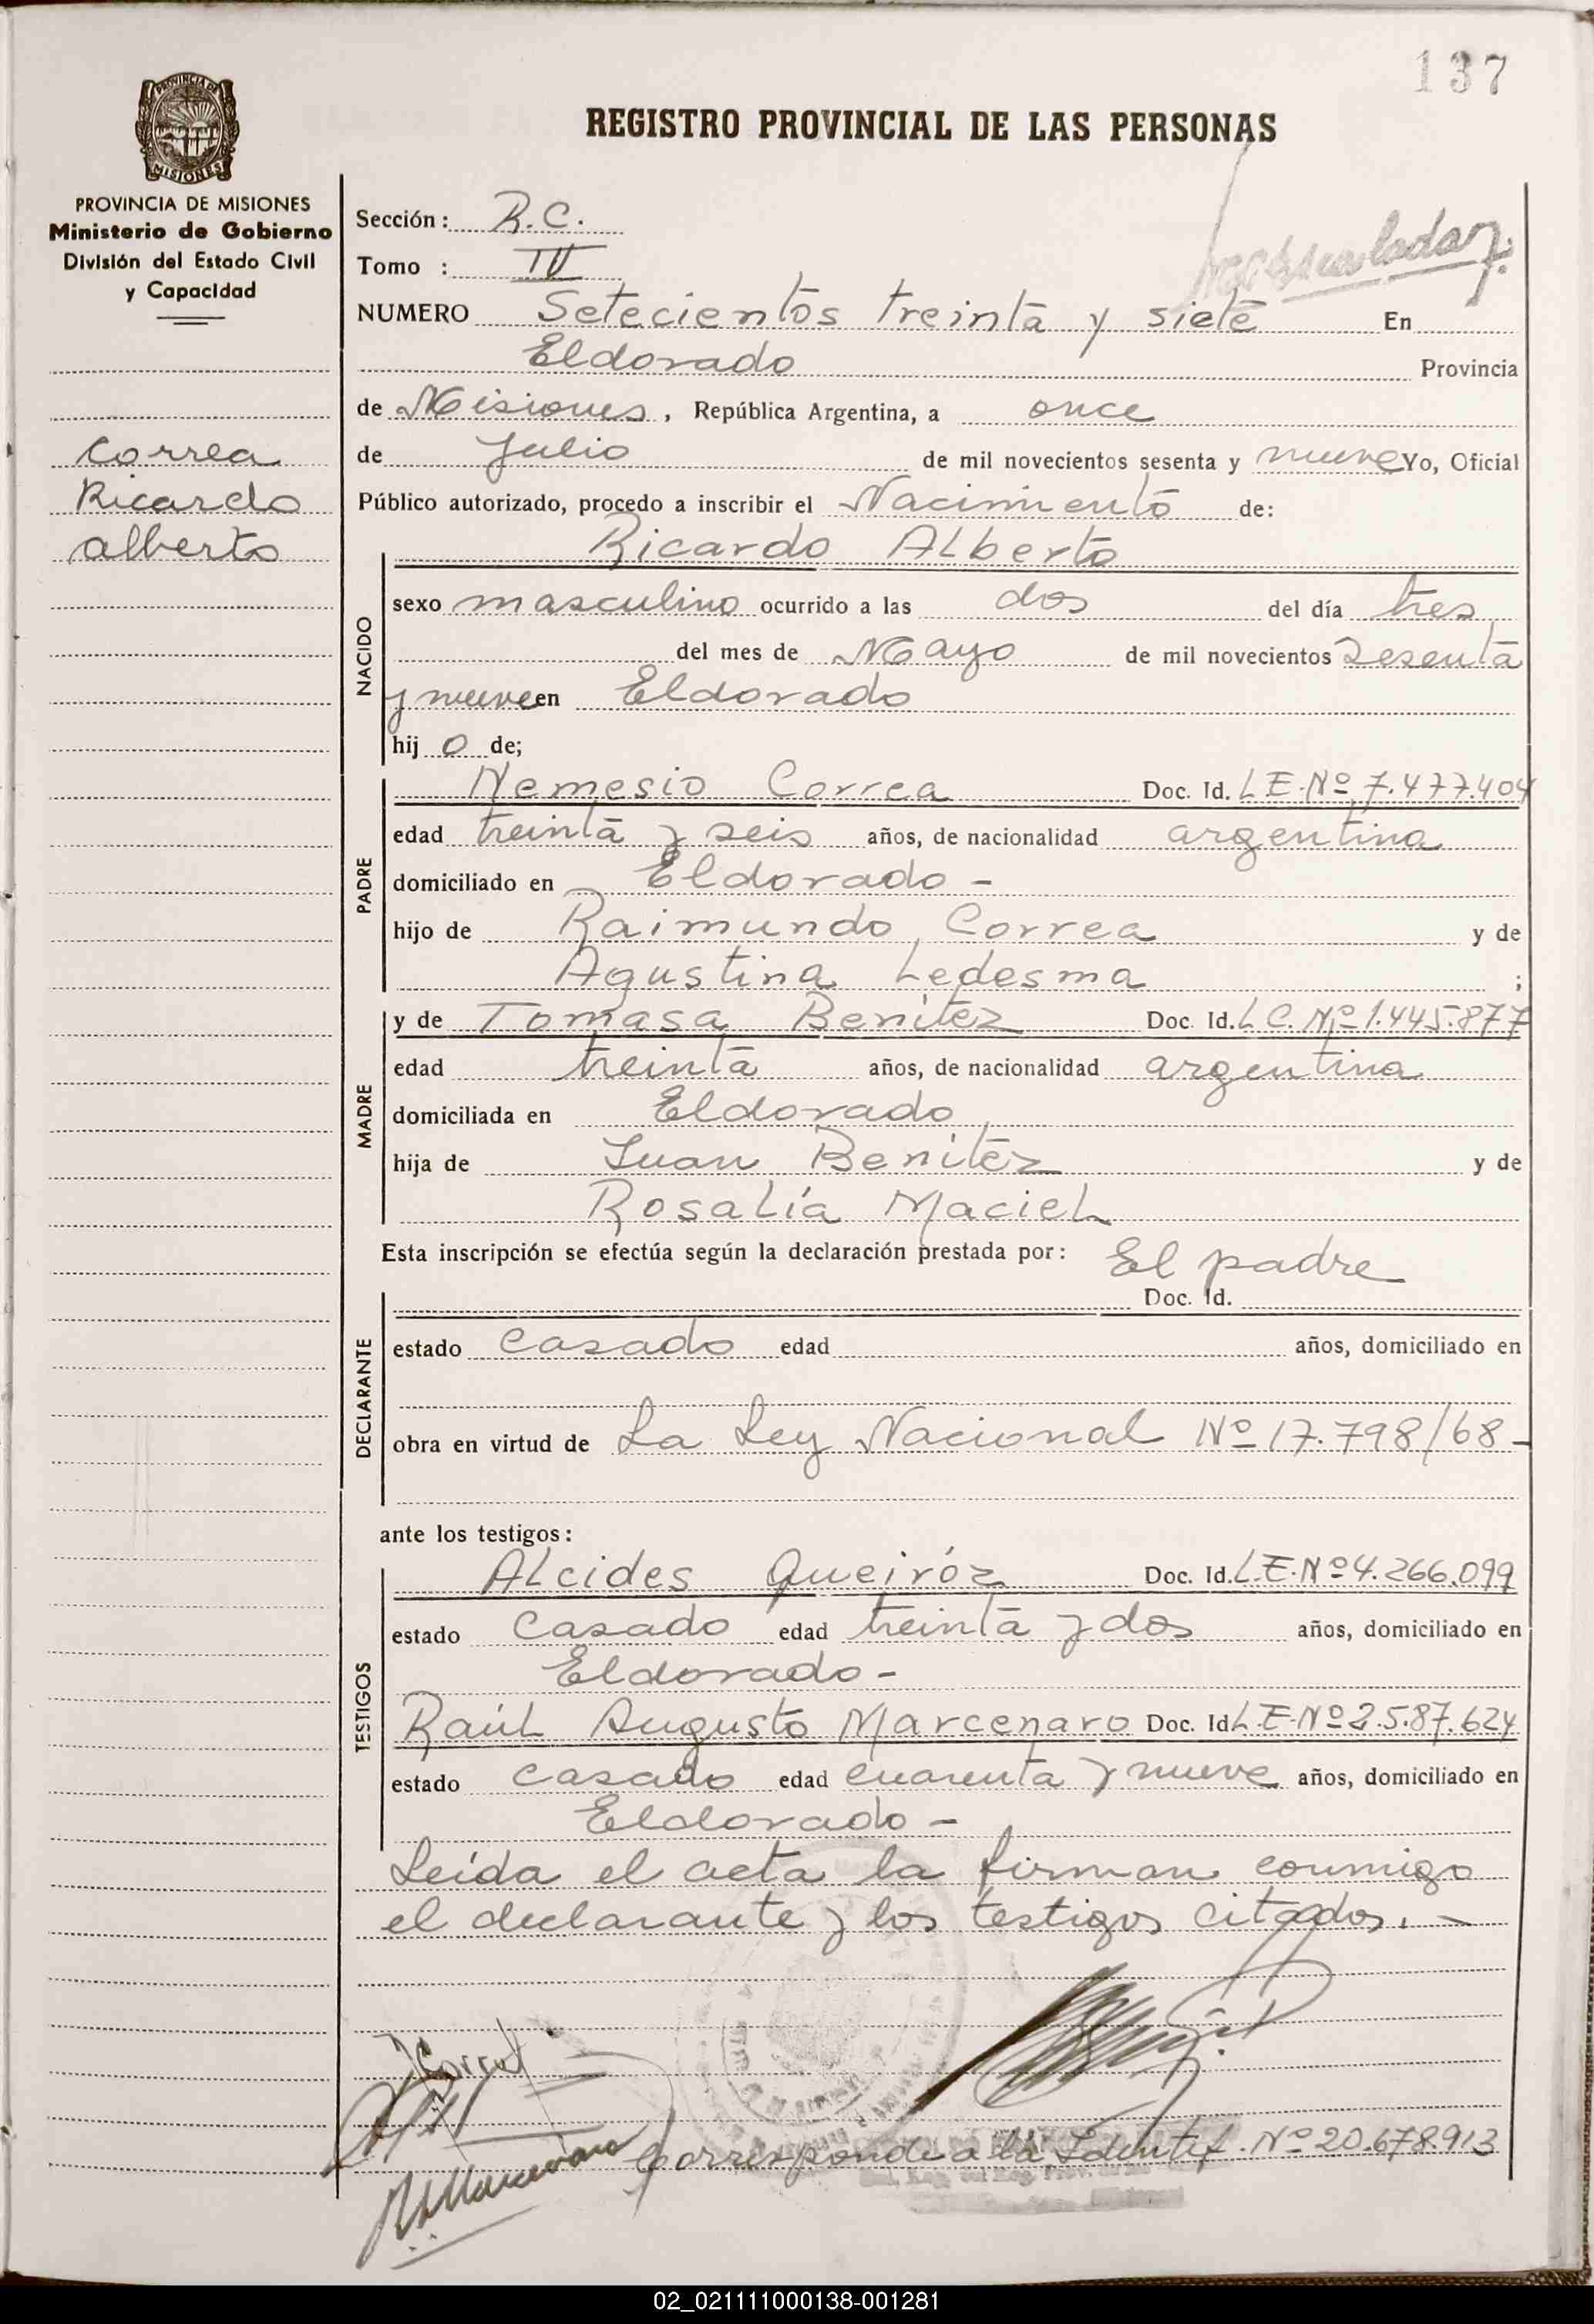 137
REGISTRO PROVINCIAL DE LAS PERSONAS
PROVINCIA DE MISIONES
MISIONES
PROVINCIA DE MISIONES
Ministerio de Gobierno
División del Estado Civil
y Capacidad
Correa
Ricardo
alberto
Sección: R.C.
Tomo : IV
NUMERO Setecientos treinta y siete En
Eldorado Provincia
de Misiones, República Argentina, a once
de Julio de mil novecientos sesenta y nueve Yo, Oficial
Público autorizado, procedo a inscribir el Nacimiento de:
Ricardo Alberto
NACIDO
sexo masculino ocurrido a las dos del día tres
del mes de Mayo de mil novecientos sesenta
y nueve en Eldorado
hij o de;
PADRE
Nemesio Correa Doc. Id. L E. Nº 7.477.404
edad treinta y seis años, de nacionalidad argentina
domiciliado en Eldorado -
hijo de Raimundo Correa y de
Agustina Ledesma ;
MADRE
y de Tomasa Benitez Doc. Id. L C. Nº 1.445.877
edad treinta años, de nacionalidad argentina
domiciliada en Eldorado
hija de Juan Benitez y de
Rosalía Maciel
Esta inscripción se efectúa según la declaración prestada por: El padre
DECLARANTE
Doc. Id.
estado casado edad años, domiciliado en
obra en virtud de La Ley Nacional Nº 17.798/68 -
ante los testigos:
TESTIGOS
Alcides Queiróz Doc. Id. L.E. Nº 4.266.099
estado casado edad treinta y dos años, domiciliado en
Eldorado -
Raúl Augusto Marcenaro Doc. Id L.E. Nº 2.587.624
estado casado edad cuarenta y nueve años, domiciliado en
Eldorado -
Leída el acta la firman conmigo
el declarante y los testigos citados. -
Corresponde a la Identif. Nº 20.678.913
02_021111000138-001281